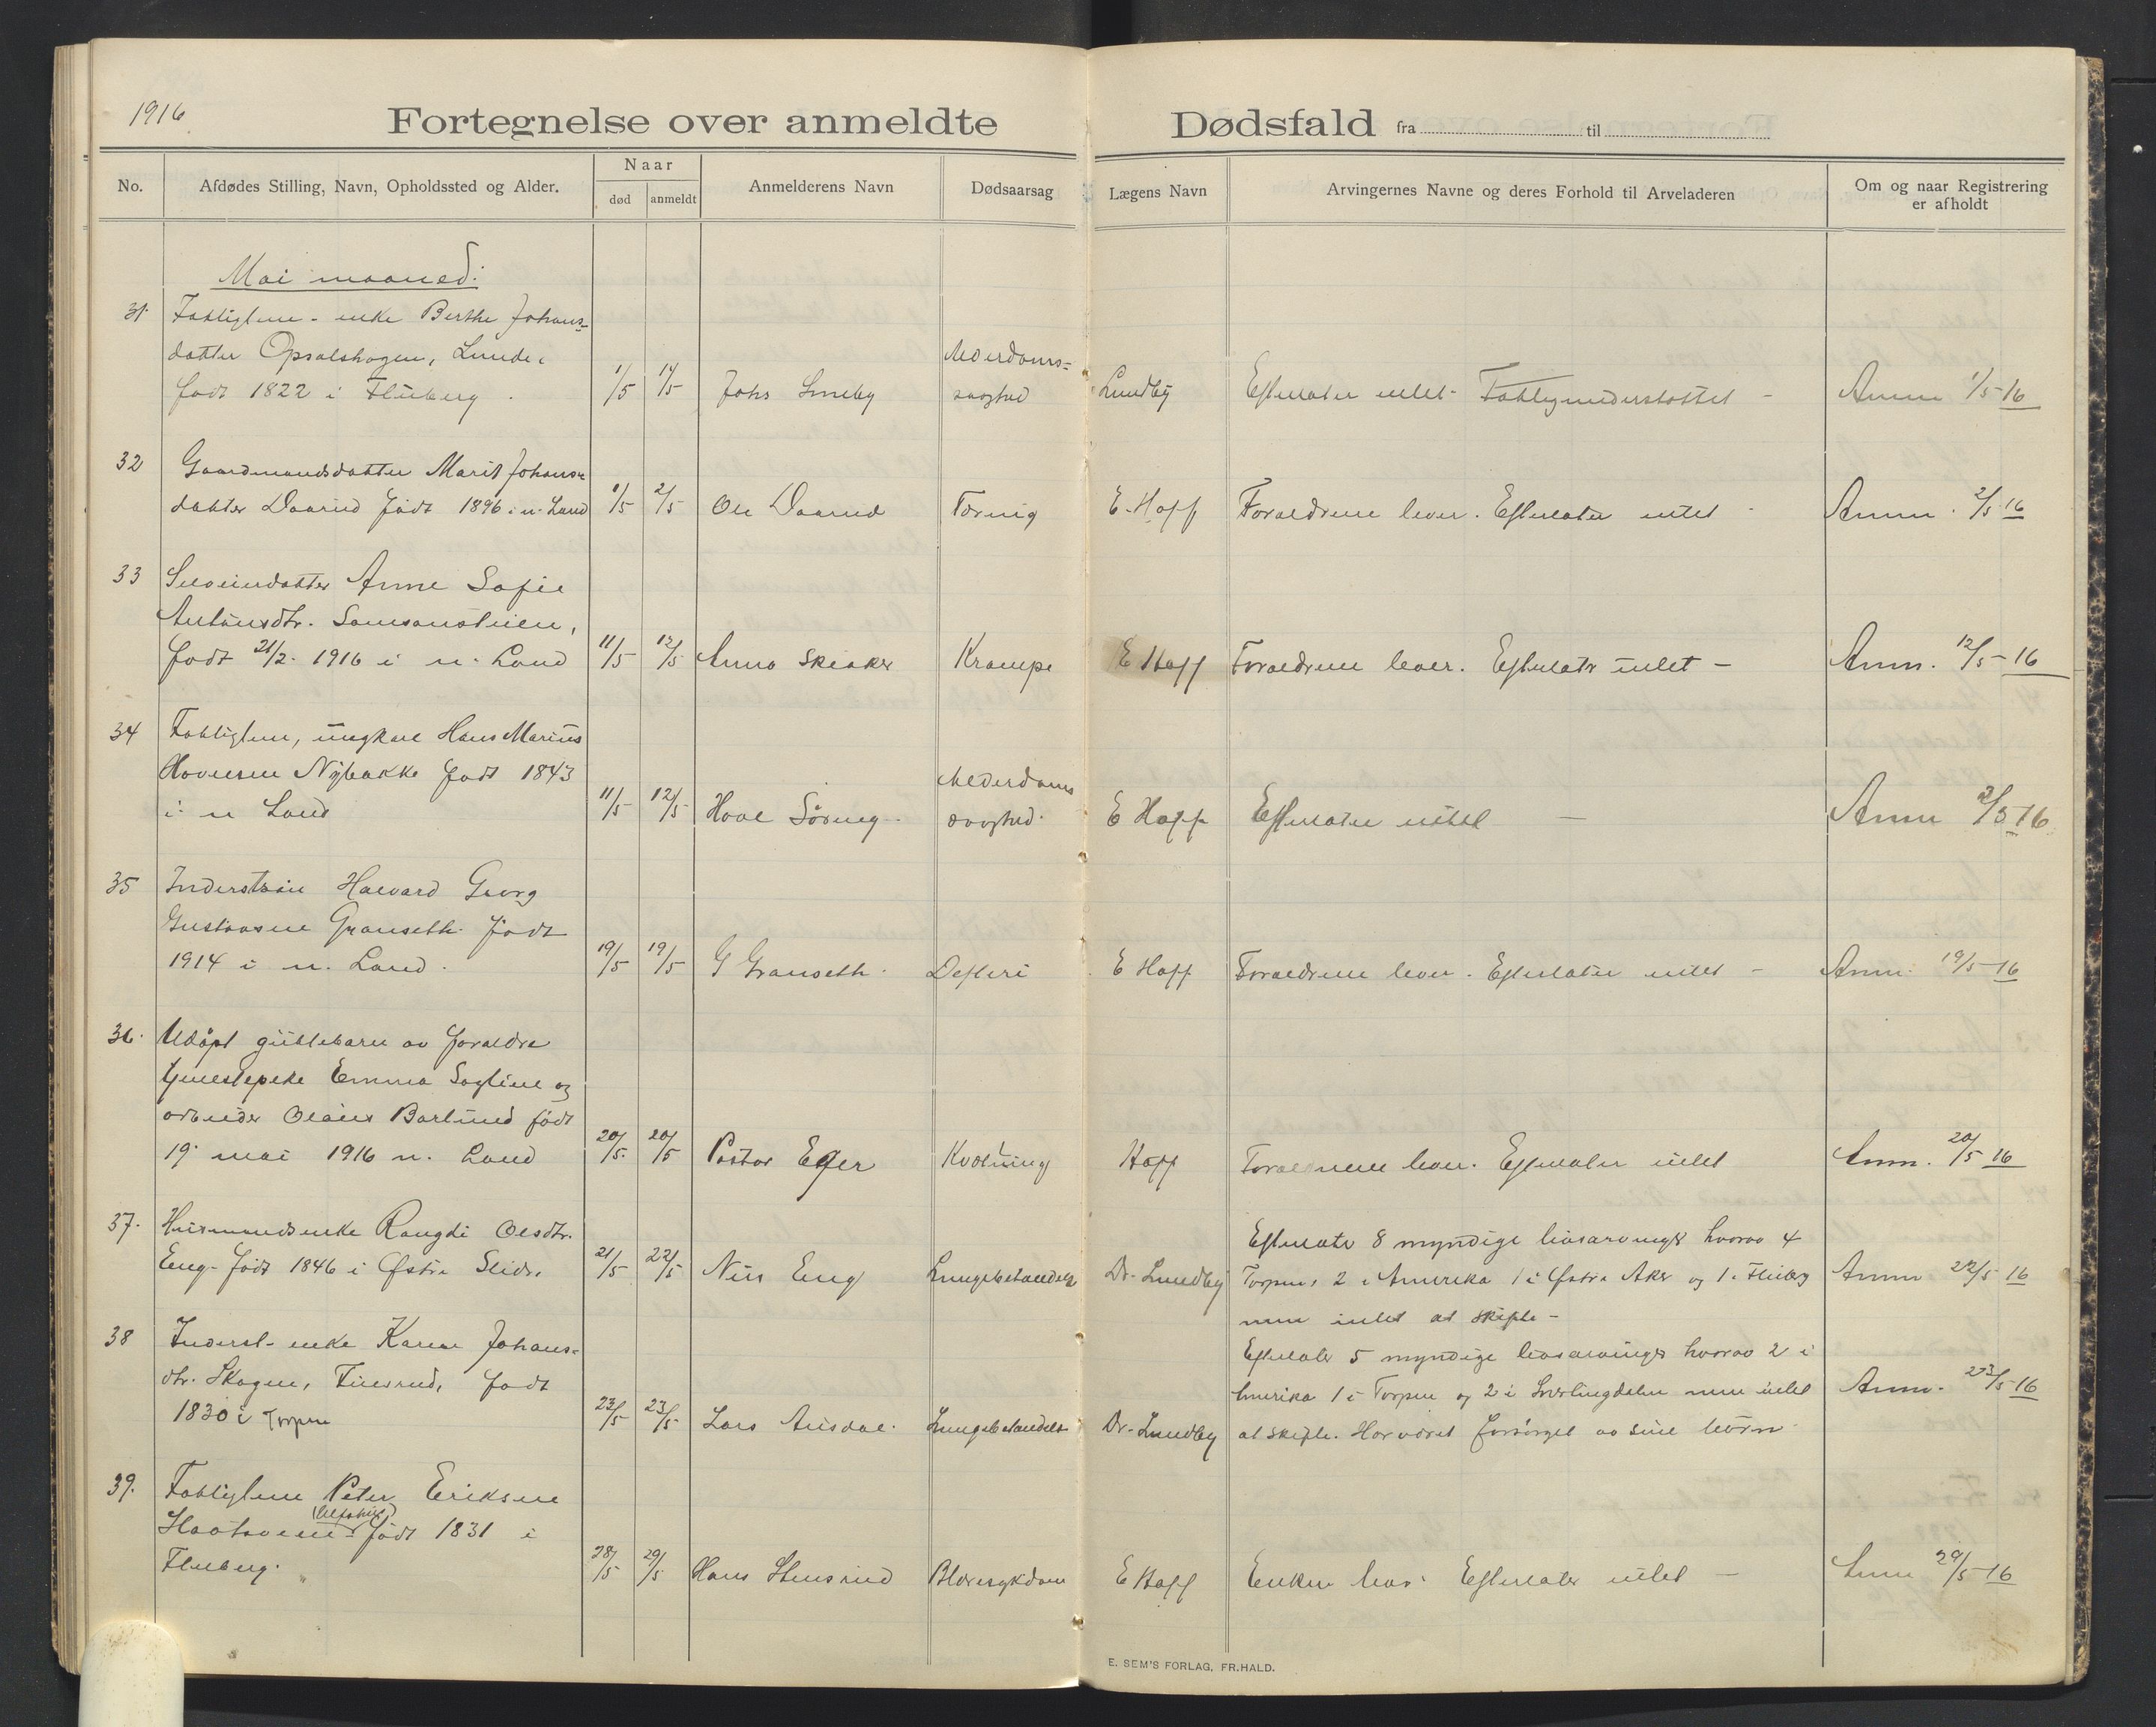 1916
Fortegnelse over anmeldte Dødsfald fra til
No.
Afdødes Stilling, Navn, Opholdssted og Alder.
Naar
død
anmeldt
Anmelderens Navn
Dødsaarsag
Lægens Navn
Arvingernes Navne og deres Forhold til Arveladeren
Om og naar Registrering
er afholdt
Mai maaned:
31. Fattiglem - enke Berthe Johans-
datter Opsalshagen, Lunde,
født 1822 i Fluberg
1/5
1/5
Johs Smeby
Alderdoms=
svaghed
Lundby
Efterlater intet - Fattigunderstøttet -
Anm 1/5-16
32 Gaardmandsdatter Marit Johans=
datter Daarud født 1896 i n. Land
1/5
2/5
Ole Daarud
Tæring
E. Hoff
Forældrene lever. Efterlater intet
Anm. 2/5 16
33 Anne Sofie
Antonsdtr. Samsonsteien,
født 21/2. 1916 i n. Land
11/5
12/5
Anna Skiaker
Krampe
E Hoff
Forældrene lever. Efterlater intet -
Anm. 12/5-16
34 Fattiglem, ungkarl Hans Marius
Hoversen Nybakke født 1843
i n Land
11/5
12/5
Hoal
Alderdoms
svaghed.
E Hoff
Efterlater intet -
Anm /5 16
35 Inderstsøn Halvard Georg
Gustavsen Granseth. født
1914 i n. Land.
19/5
19/5
G Granseth.
Difteri
E Hoff
Forældrene lever. Efterlater intet -
Anm. 19/5-16
36. Udøpt guttebarn av forældre
tjenestepike Emma og
arbeider Olaus Barlund født
19. mai 1916 n. Land
20/5.
20/5
Pastor Eger
Kvælning
Hoff
Forældrene lever. Efterlater intet
Anm. 20/5 16
37. Husmandsenke Rangdi Olsdtr.
Eng. født 1846 i Østre Slidre
21/5
22/5
Nils Eng
Lungebetændelse
Dr. Lundby
Efterlater 8 myndige livsarvinger hvorav 4
i Torpen, 2 i Amerika 1 i Østre Aker og 1 i Fluberg
men intet at skifte -
Anm 22/5 16
38 Inderst- enke Karen Johans=
dtr. Skagen, Finsrud, født
1830 i Torpen
23/5
23/5
Lars
Lungebetændelse
Dr. Lundby
Efterlater 5 myndige livsarvinger hvorav 2 i
Amerika 1 i Torpen og 2 i men intet
at skifte. Har været forsørget av sine børn.
Anm. 23/5 16
39. Fattiglem Peter Eriksen
født 1831 i
Fluberg.
28/5
29/5
Hans Stensrud
Blæresykdom
E Hoff
Enken lever. Efterlater intet -
Anm 29/5-16
E. SEM'S FORLAG, FR.HALD.